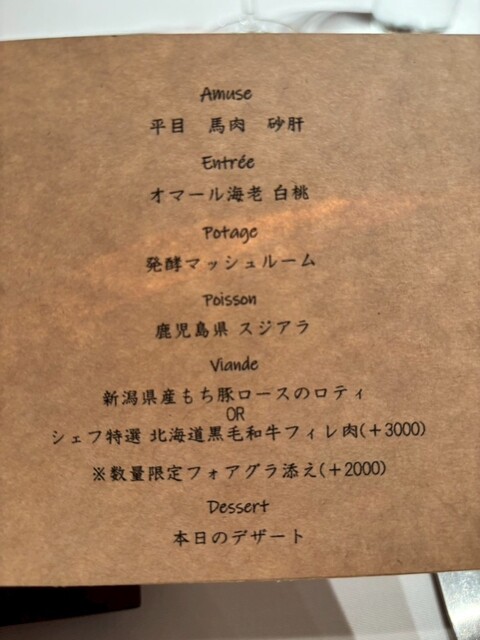 Amuse
平目　馬肉　砂肝
Entrée
オマール海老 白桃
Potage
発酵マッシュルーム
Poisson
鹿児島県 スジアラ
Viande
新潟県産もち豚ロースのロティ
OR
シェフ特選 北海道黒毛和牛フィレ肉(+3000)
※数量限定フォアグラ添え(+2000)
Dessert
本日のデザート